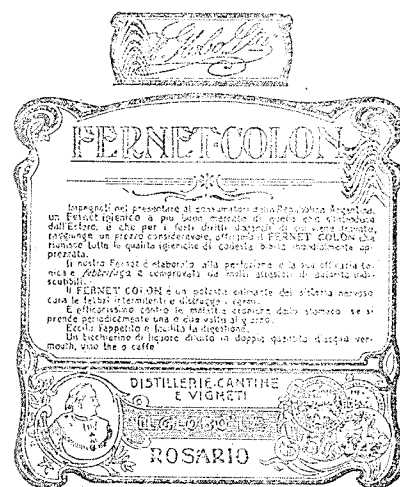 FERNET-COLON
Impegnati nel presentare al consumatore della Repubblica Argentina,
un Fernet igienico a più buon mercato di quello che s'introduce
dall'Estero, e che per i forti diritti doganali di cui viene gravato,
raggiunge un prezzo considerevole, offriamo il FERNET COLON che
riunisce tutte le qualità igieniche di codesta bibita mondialmente ap-
prezzata.
Il nostro Fernet è elaborato alla perfezione e la sua efficacia to-
nica e febbrifuga è comprovata da molti attestati di autorità indi-
scutibili.
Il FERNET COLON è un potente calmante del sistema nervoso
cura le febbri intermitenti e distrugge i vermi.
È efficacissimo contro le malattie croniche dello stomaco se si
prende periodicamente una o due volte al giorno.
Eccita l'appetito e facilita la digestione.
Un bicchierino di liquore diluito in doppia quantità d'acqua ver-
mouth, vino the o caffè
DISTILLERIE-CANTINE
E VIGNETI
ROSARIO